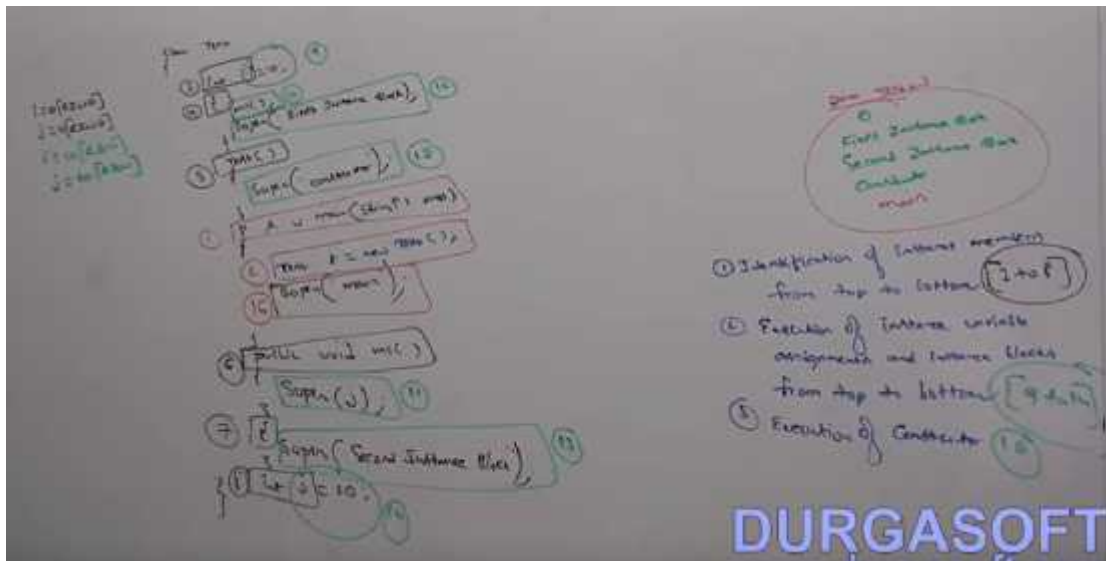 i=0[RIWO]
j=0[RIWO]
i=10[R&W]
j=20[R&W]
class Test
③ int i=10; ⑨
④ { m1(); ⑩
Sopln("First Instance Block"); ⑫
}
⑤ Test()
{
Sopln("constructor"); ⑮
}
① p s v main(String[] args)
{
② Test t = new Test();
⑯ Sopln("main");
}
⑥ public void m1()
{
Sopln(j); ⑪
}
⑦ {
Sopln("Second Instance Block"); ⑬
}
⑧ int j=20; ⑭
}
java Test
0
First Instance Block
Second Instance Block
Constructor
main
① Identification of instance members
from top to bottom [3 to 8]
② Execution of Instance variable
assignments and instance blocks
from top to bottom [9 to 14]
③ Execution of Constructor ⑮
DURGASOFT